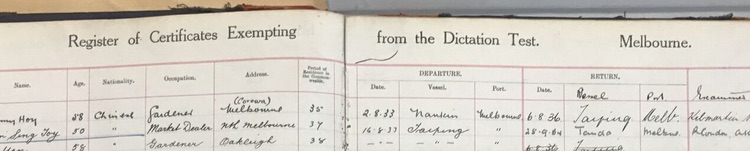 Register of Certificates Exempting from the Dictation Test. Melbourne.
Name. Age. Nationality. Occupation. Address. Period of Residence in the Commonwealth. DEPARTURE. RETURN.
Date. Vessel. Port. Date. Vessel Port
(Corowa)
Hoy 58 Chinese Gardener Melbourne 35 2.8.33 Nankin Melbourne 6.8.36 Taiping Melb.
Sing Toy 50 " Market Dealer Nth Melbourne 37 16.8.33 Taiping " 28.9.34 Tanda Melbne.
58 " Gardener Oakleigh 38 — " — — " — " 6.8.36 Taiping